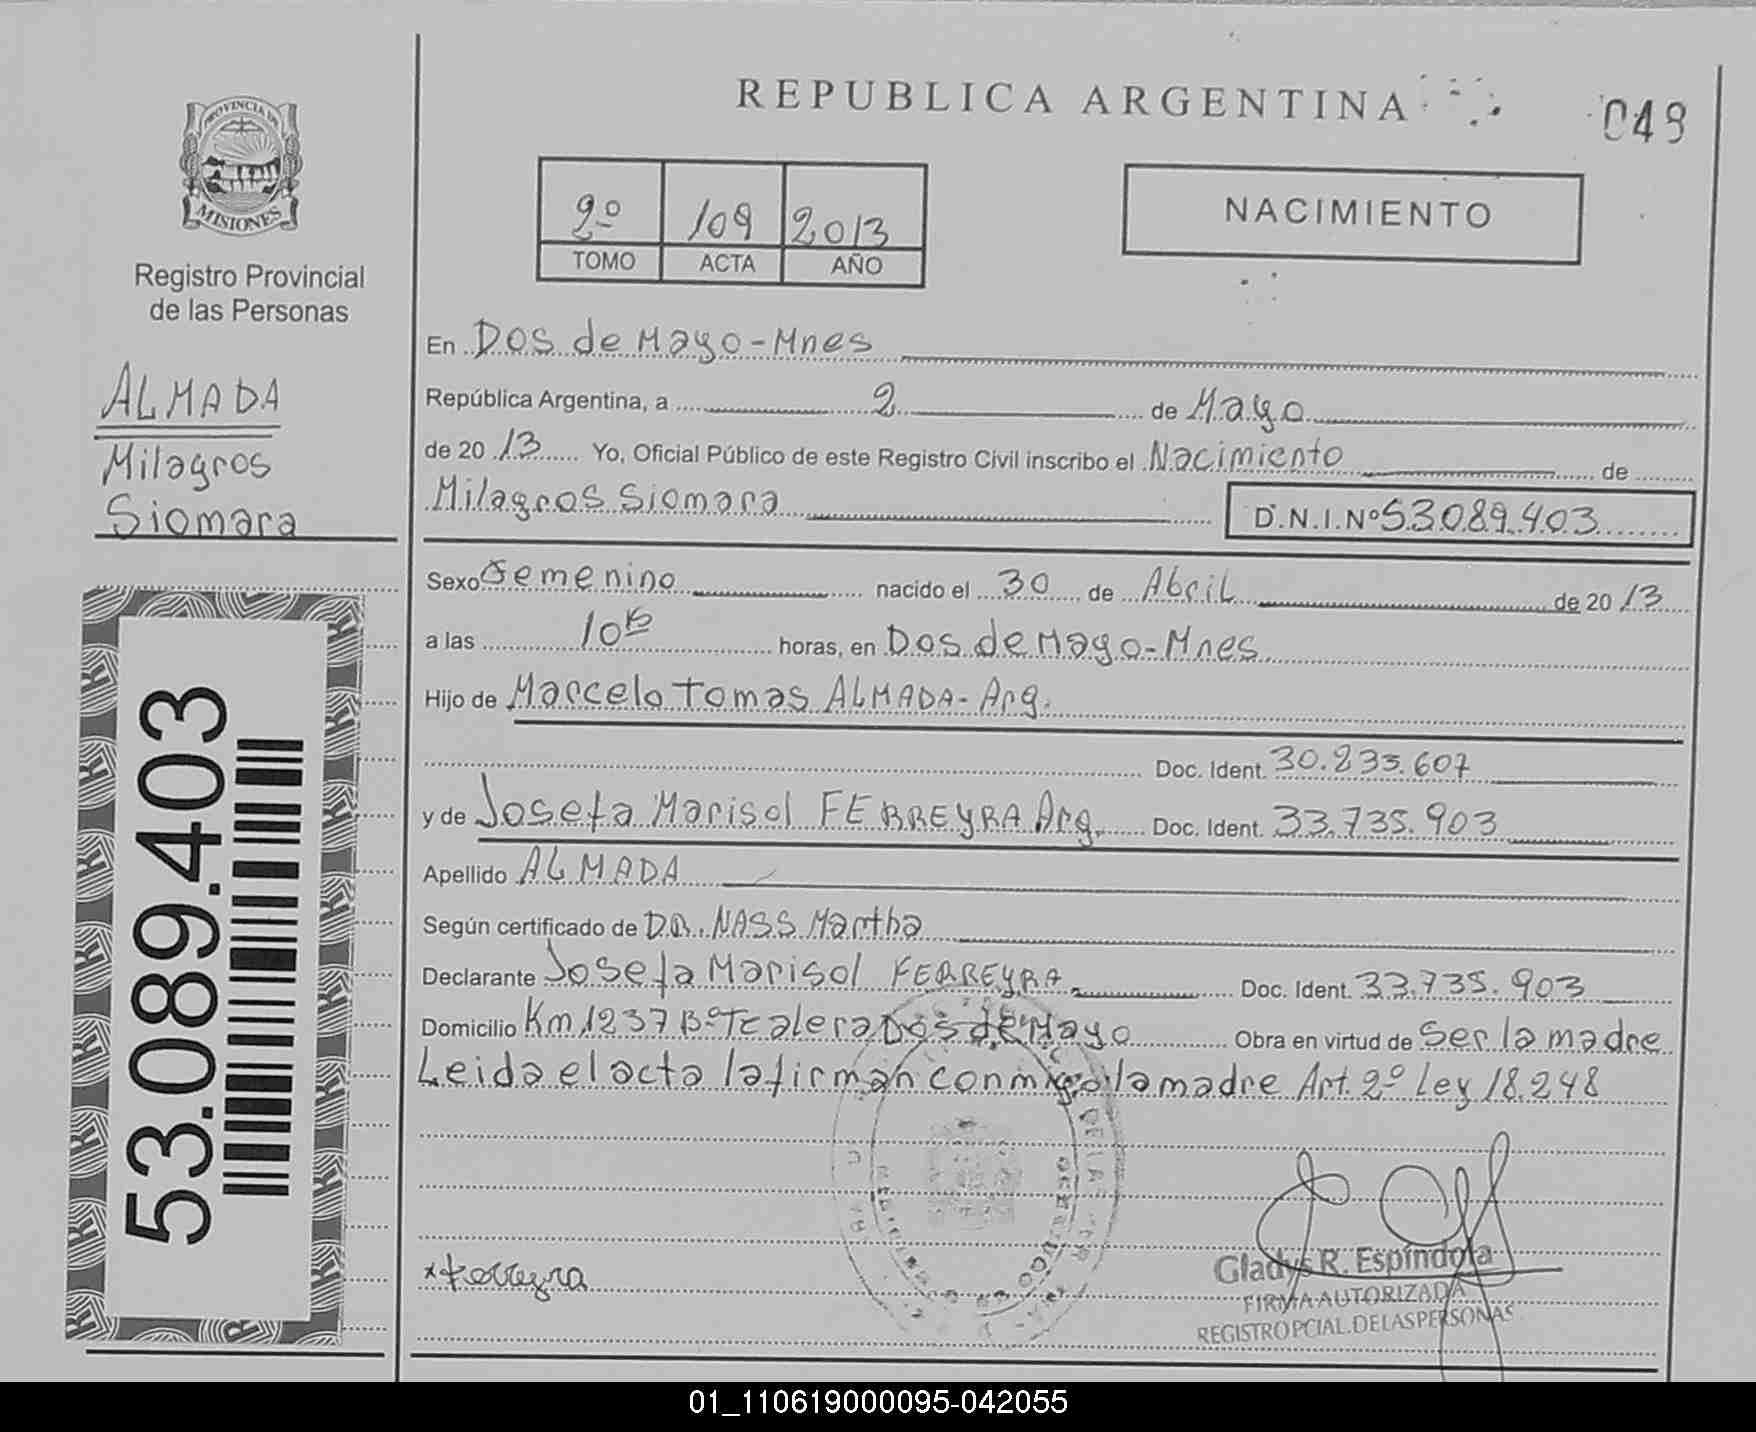 REPUBLICA ARGENTINA
049
PROVINCIA DE
MISIONES
Registro Provincial
de las Personas
2º 109 2013
TOMO ACTA AÑO
NACIMIENTO
ALMADA
Milagros
Siomara
53.089.403
En Dos de Mayo-Mnes
República Argentina, a 2 de Mayo
de 2013 Yo, Oficial Público de este Registro Civil inscribo el Nacimiento de
Milagros Siomara D.N.I.Nº 53.089.403
Sexo Femenino nacido el 30 de Abril de 2013
a las 10 horas, en Dos de Mayo-Mnes
Hijo de Marcelo Tomas ALMADA-Arg.
Doc. Ident. 30.235.607
y de Josefa Marisol FERREYRA Arg. Doc. Ident. 33.735.903
Apellido ALMADA
Según certificado de DR. NASS Martha
Declarante Josefa Marisol FERREYRA Doc. Ident. 33.735.903
Domicilio Km 1237 Bº Tealera Dos de Mayo Obra en virtud de Ser la madre
Leida el acta la firman conmigo la madre Art. 2º Ley 18.248
Ferreyra
Gladys R. Espíndola
FIRMA AUTORIZADA
REGISTRO PCIAL. DE LAS PERSONAS
01_110619000095-042055